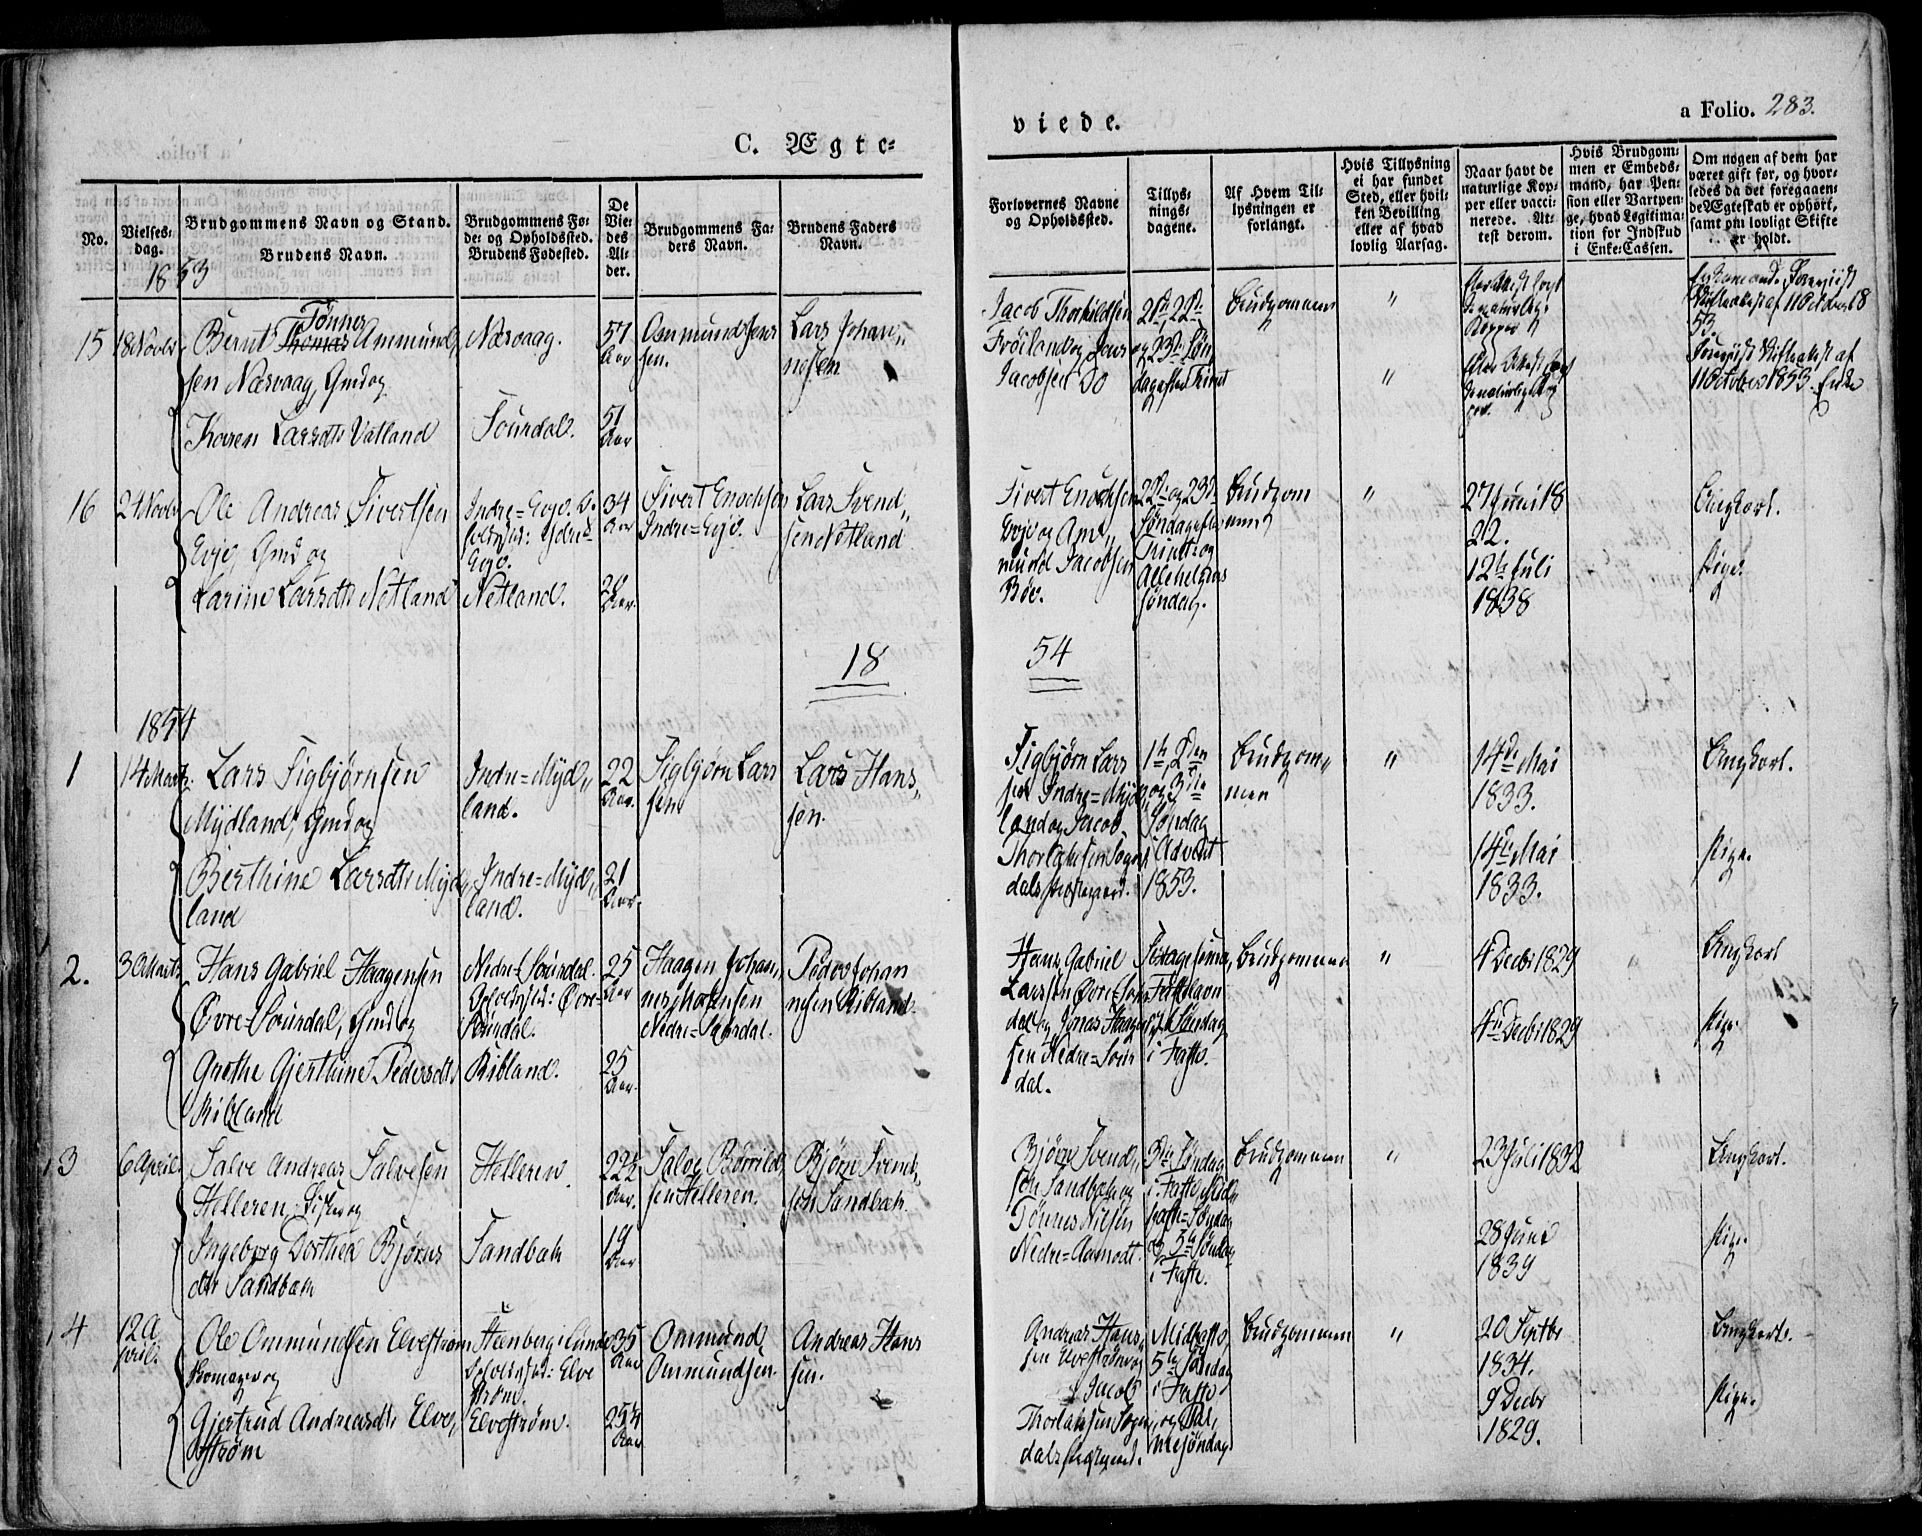 C. Ægte-
viede.
a Folio. 283.
No.
Vielses-
dag.
Brudgommens Navn og Stand.
Brudens Navn.
Brudgommens Fø-
de- og Opholdssted.
Brudens Fødested.
De
Vie-
des
Al-
der.
Brudgommens Fa-
ders Navn.
Brudens Faders
Navn.
Forlovernes Navne
og Opholdssted.
Tillys-
nings-
dagene.
Af Hvem Til-
lysningen er
forlangt.
Hvis Tillysning
ei har fundet
Sted, eller hvil-
ken Bevilling
eller af hvad
lovlig Aarsag.
Naar havt de
naturlige Kop-
per eller vacci-
nerede. At-
test derom.
Hvis Brudgom-
men er Embeds-
mand, har Pen-
sion eller Vartpen-
ge, hvad Legitima-
tion for Indskud
i Enke-Cassen.
Om nogen af dem har
været gift før, og hvor-
ledes da det foregaaen-
de Ægteskab er ophørt,
samt om lovligt Skifte
er holdt.
1853
15
18 Novbr
Bernt Tønnes Ammund,
sen Næsvaag, Gmd og
Karen Larsdtr Vatland
Næsvaag.
Souрdal.
57
Aar
51
Aar
Osmund Jens
sen.
Lars Johan,,
nesen
Jacob Thorkildsen
Frøiland og Jens
Jacobsen Do
21de, 22de
og 23de Søn
dag efter Trinit
Brudgommen
"
"
Enkemand.
11 October 18
53.
11 October 1853. Enke
16
24 Novbr
Ole Andreas Sivertsen
Evje, Gmd og
Karine Larsdtr Netland
Indre=Evje.
Evje.
Netland.
34
Aar
Aar.
Sivert Enochsen
Indre=Evje.
Lars Svend,,
sen Netland
Sivert Enochsen
Evje og Am,,
mund Jacobsen
Bøe.
22de og 23de
Søndag efter
Trinit. og
Allehelgens
søndag.
Brudgom
men
"
27 Juni 18
22.
12te Juli
1838
Ungkarl.
Pige.
18
54
1854
1
14 Marts.
Lars Sigbjørnsen
Mydland, Gmd og
Berthine Larsdtr Myd,
land
Indre=Myd,,
land.
Indre=Myd,,
land.
22
Aar.
21
Aar.
Sigbjørn Lars
sen
Lars Hans,,
sen.
Sigbjørn Lars
sen Indre=Myd
land og Jacob
Thorlaksen Sogn,
dals Prestegaard.
1te, 2den
og 3die
Søndag
i Advent
1853.
Brudgom,,
men
"
14de Mai
1833.
14de Mai
1833.
Ungkarl.
Pige.
2.
30 Marts
Hans Gabriel Haagensen
Øvre=Sourdal, Gmd og
Grethe Gjerthine Pedersdtr
Ribland
Nedre=Sourdal.
Opholdssted: Øvre=
Sourdal.
Ribland.
25
Aar
25
Aar.
Haagen Johan,
Nedre=Sourdal.
Peder Johan
nesen Ribland.
Hans Gabriel
Larssen Øvre=Sour
dal og Jonas Haagen
sen Nedre=Sour
dal.
Søndag
i Faste.
Brudgommen
"
4 Decbr 1829
4de Decbr 1829
Ungkarl
Pige.
3
6 April.
Salve Andreas Salvesen
Helleren, Fisker og
Ingeborg Dorthea Bjørns
dtr Sandbæk
Helleren.
Sandbæk
22½
Aar.
19
Aar
Salve Børrild,
sen Helleren.
Bjørn Svend
sen Sandbæk.
Bjørn Svend,,
sen Sandbæk og
Tønnes Nilsen
Nedre=Aamodt.
3die Søndag
i Faste, Mid,,
faste=Søndag
og 5te Søndag
i Faste.
Brudgommen
"
23 Juli 1832
28 Juni
1839
Ungkarl.
Pige.
4
12 A
pril.
Ole Ommundsen Elvestrøm
Skomager og
Gjertrud Andreasdtr Elve,
strøm
Steenberg i Lunde
Opholdssted: Elve
strøm.
Elvestrøm.
35
Aar
25¼
Aar
Ommund
Ommundsen.
Andreas Hans
sen.
Andreas Hans,
sen Elvestrøm og
Jacob
Thorlaksen Sogn,
dals Prestegaard.
Midfaste,
5te Søndag
i Faste
og Pal,
mesøndag
Brudgommen
"
20 Septbr
1834.
9 Decbr
1829.
Ungkarl.
Pige.